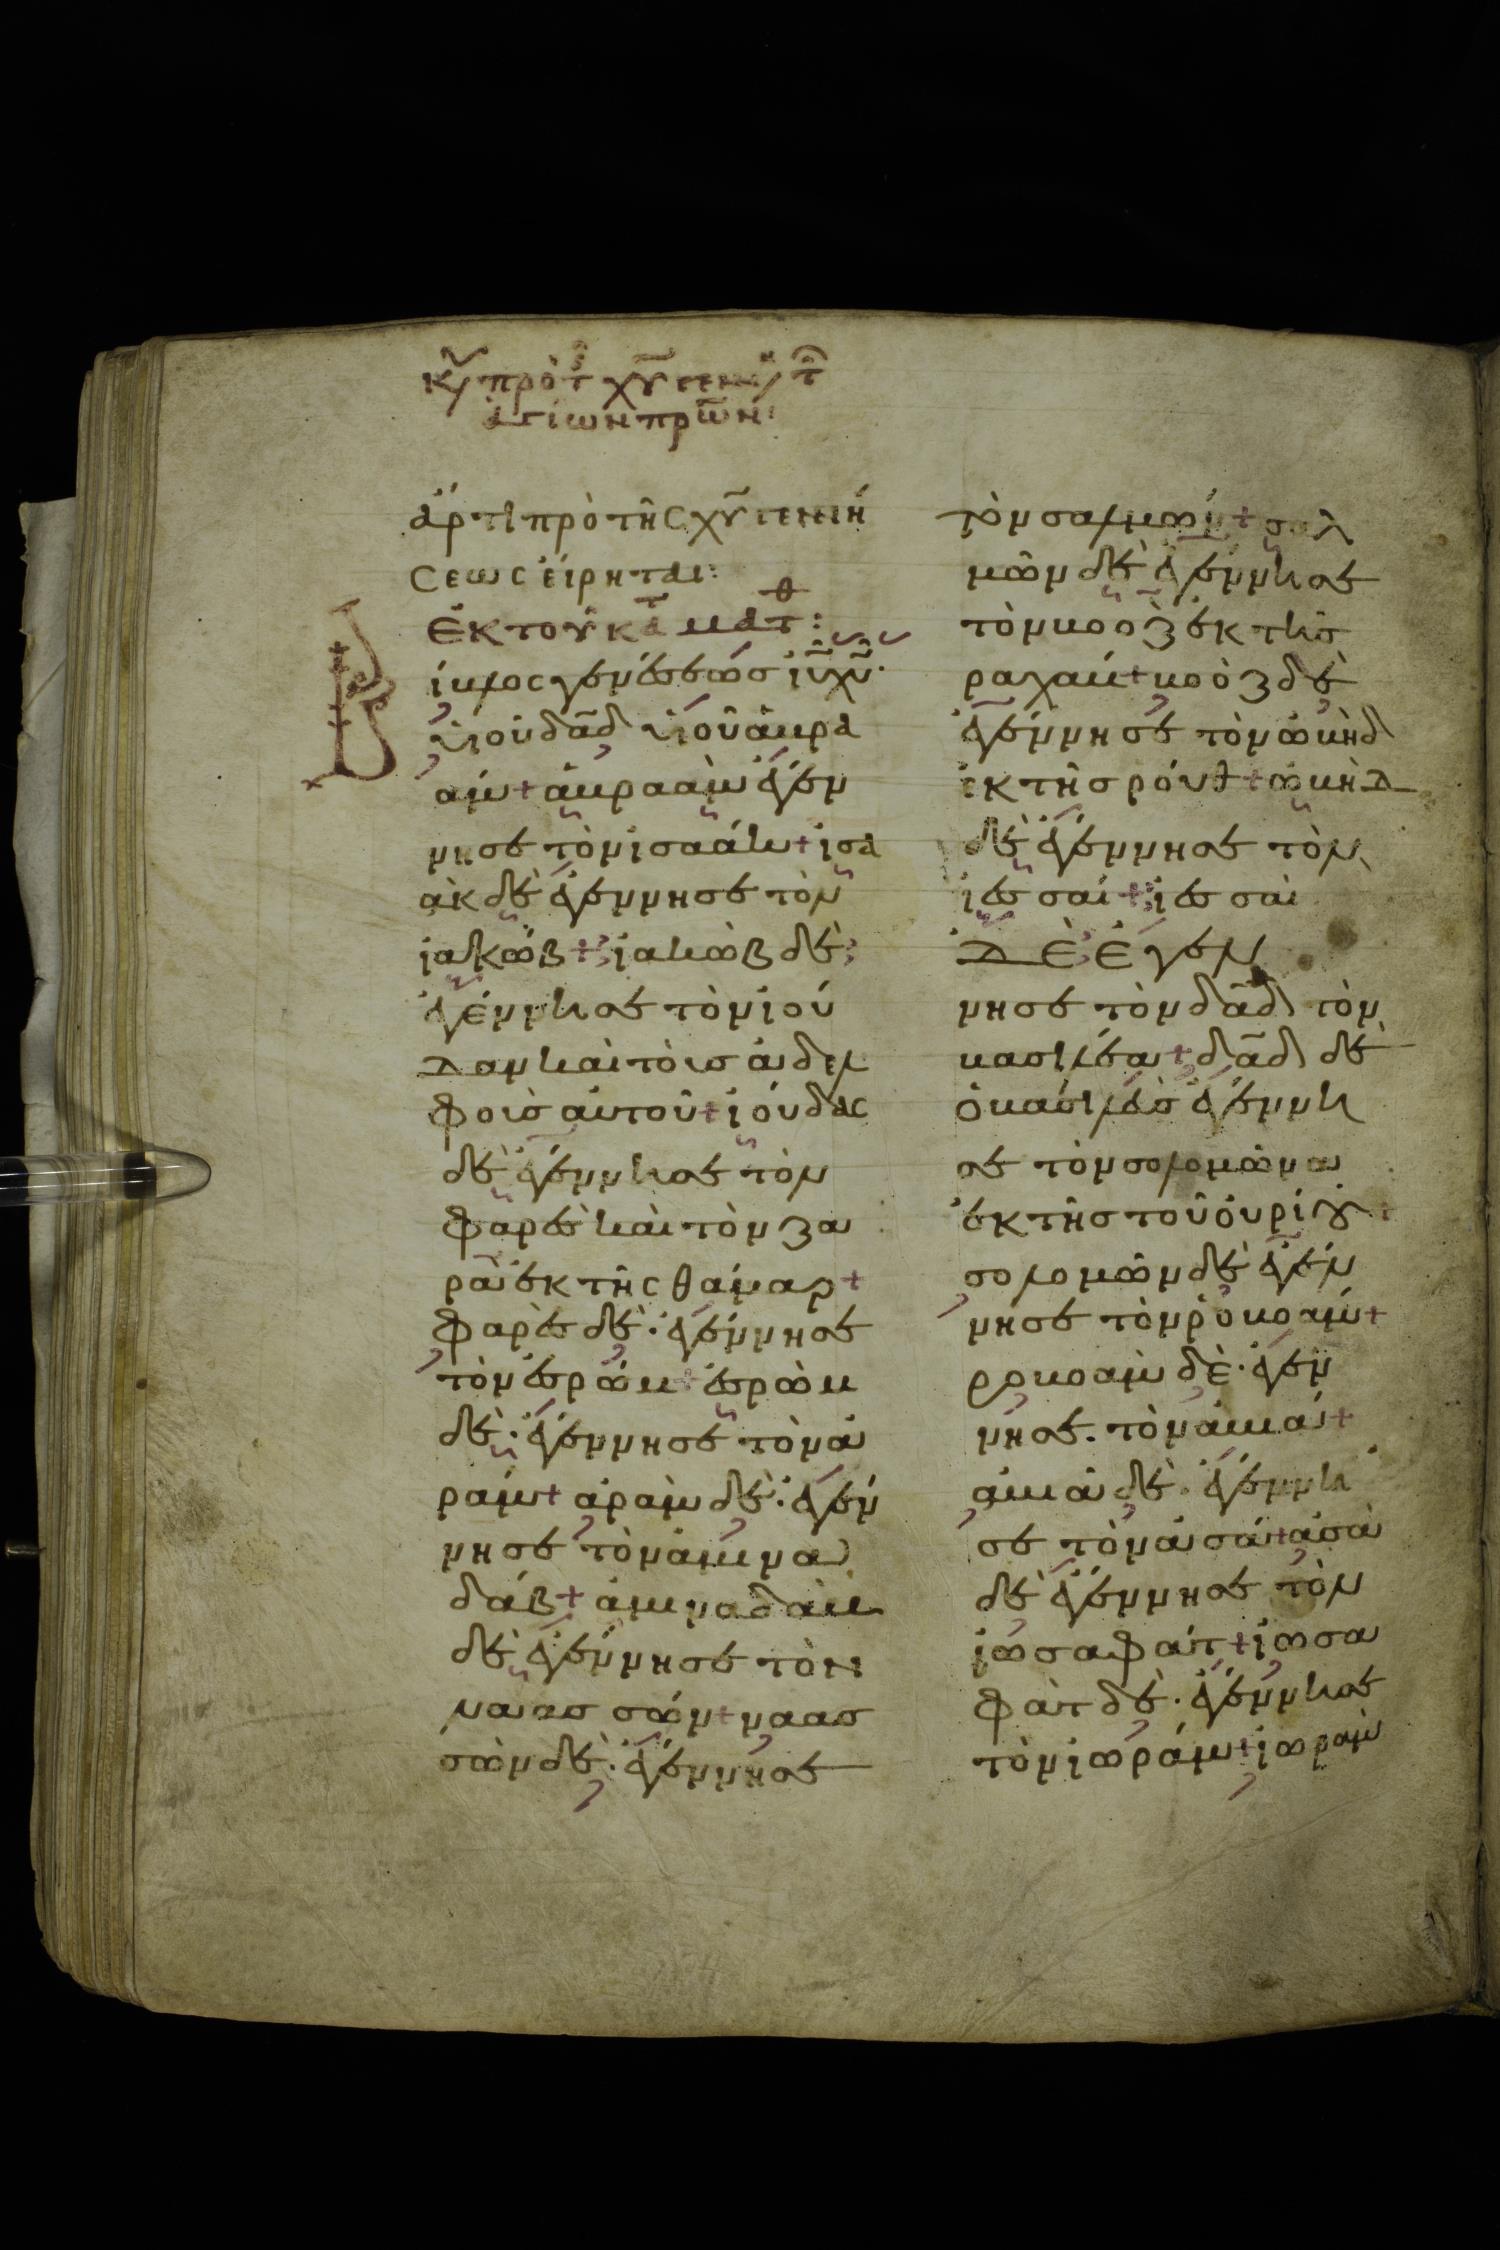 κυ προ τ χυ γεννή τ
ἁγίων πρων:
ἄρτι πρὸ τῆς χυ γεννή
σεως εἴρηται:
ἐκ τοῦ κα ματθ:
Βίβλος γενέσεως ιυ χυ·
υἱοῦ δαδ υἱοῦ ἀβρα
άμ + ἀβραὰμ ἐγέν
νησε τὸν ἰσαάκ + ἰσα
ὰκ δὲ ἐγέννησε τὸν
ἰακώβ + ἰακὼβ δὲ
ἐγέννησε τὸν ἰού
δαν καὶ τοὺς ἀδελ
φοὺς αὐτοῦ + ἰούδας
δὲ ἐγέννησε τὸν
φαρὲς καὶ τὸν ζα
ρὰ ἐκ τῆς θάμαρ +
φαρὲς δὲ· ἐγέννησε
τὸν ἐσρώμ + ἐσρὼμ
δὲ· ἐγέννησε τὸν ἀ
ράμ + ἀρὰμ δὲ· ἐγέν
νησε τὸν ἀμινα
δάβ + ἀμιναδὰβ
δὲ ἐγέννησε τὸν
ναασσών + ναασ
σὼν δὲ· ἐγέννησε
τὸν σαλμών + σαλ
μὼν δὲ ἐγέννησε
τὸν βοὸζ ἐκ τῆς
ραχάβ + βοὸζ δὲ
ἐγέννησε τὸν ὠβὴδ
ἐκ τῆς ρούθ + ὠβὴδ
δὲ ἐγέννησε τὸν
ἰεσσαί + ἰεσσαὶ
δὲ ἐγέν
νησε τὸν δαδ τὸν
βασιλέα + δαδ δὲ
ὁ βασιλεὺς ἐγέννη
σε τὸν σολομῶνα
ἐκ τῆς τοῦ οὐρίου·
σολομῶν δὲ ἐγέν
νησε τὸν ῥοβοάμ +
ροβοὰμ δὲ· ἐγέν
νησε· τὸν ἀβιά +
ἀβιὰ δὲ· ἐγέννη
σε τὸν ἀσά + ἀσὰ
δὲ ἐγέννησε τὸν
ἰωσαφάτ + ἰωσα
φὰτ δὲ· ἐγέννησε
τὸν ἰωράμ + ἰωρὰμ